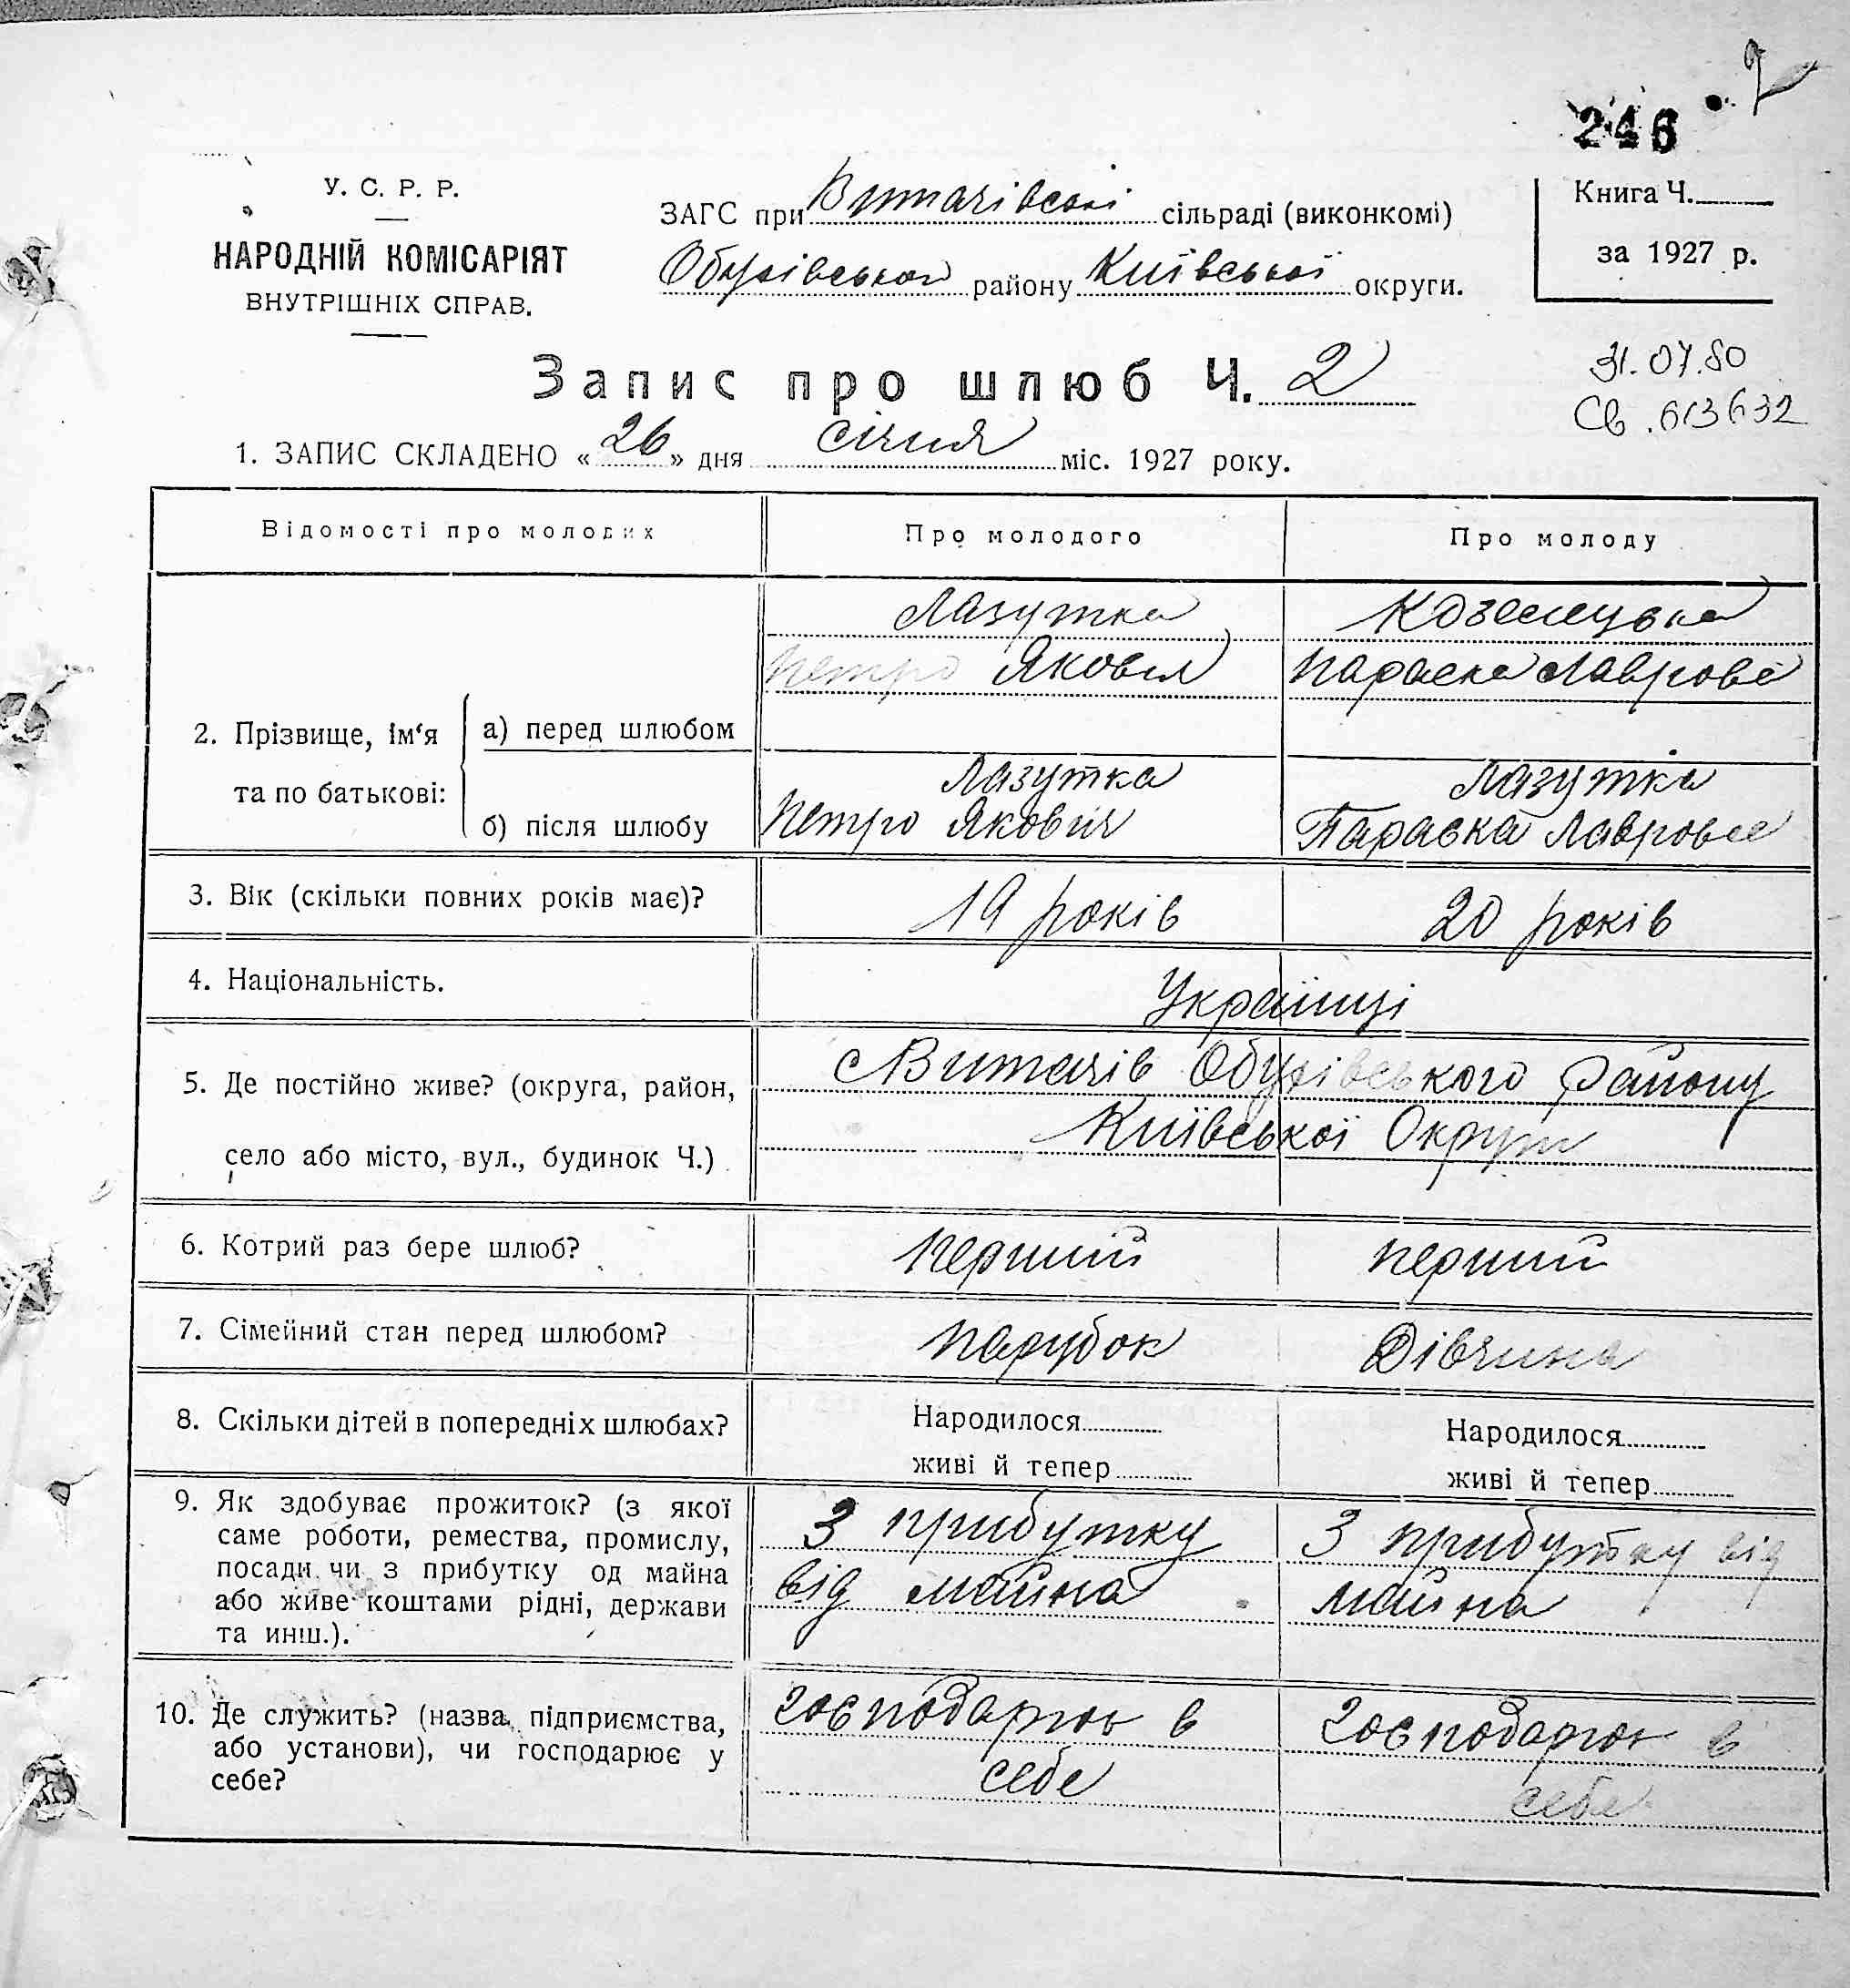 246
У. С. Р. Р.
НАРОДНІЙ КОМІСАРІЯТ
ВНУТРІШНІХ СПРАВ.
ЗАГС при Витачівскі сільраді (виконкомі)
Обухівського району Київської округи.
Книга Ч.
за 1927 р.
Запис про шлюб Ч. 2
31.07.80
Св. 613632
1. ЗАПИС СКЛАДЕНО «26» дня січня міс. 1927 року.
Відомості про молодих
Про молодого
Про молоду
2. Прізвище, ім‘я та по батькові:
а) перед шлюбом
Лазутка
Петро Якович
Козелецька
Параска Лавров
б) після шлюбу
Лазутка
Петро Якович
Лазутка
Параска Лавров
3. Вік (скільки повних років має)?
19 років
20 років
4. Національність.
Українці
5. Де постійно живе? (округа, район,
село або місто, вул., будинок Ч.)
с Витачів Обухівського Району
Київської Округи
6. Котрий раз бере шлюб?
перший
перший
7. Сімейний стан перед шлюбом?
парубок
Дівчина
8. Скільки дітей в попередніх шлюбах?
Народилося
живі й тепер
Народилося
живі й тепер
9. Як здобуває прожиток? (з якої
саме роботи, ремества, промислу,
посади чи з прибутку од майна
або живе коштами рідні, держави
та инш.).
З прибутку
від майна
З прибутку від
майна
10. Де служить? (назва підприємства,
або установи), чи господарює у
себе?
господарює в
себе
Господарює в
себе